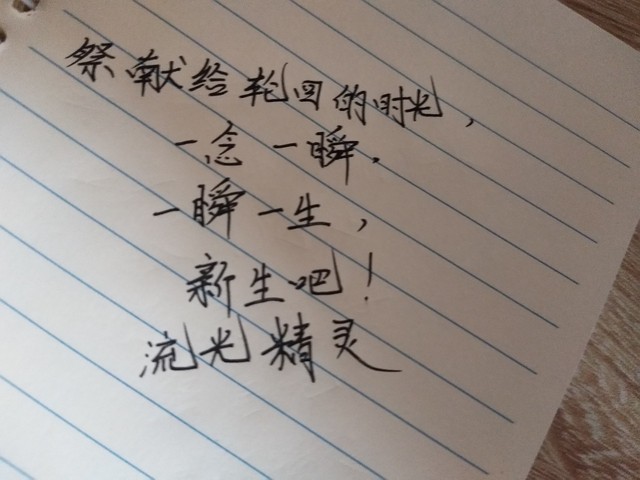 祭献给轮回的时光，
一念一瞬，
一瞬一生，
新生吧！
流光精灵